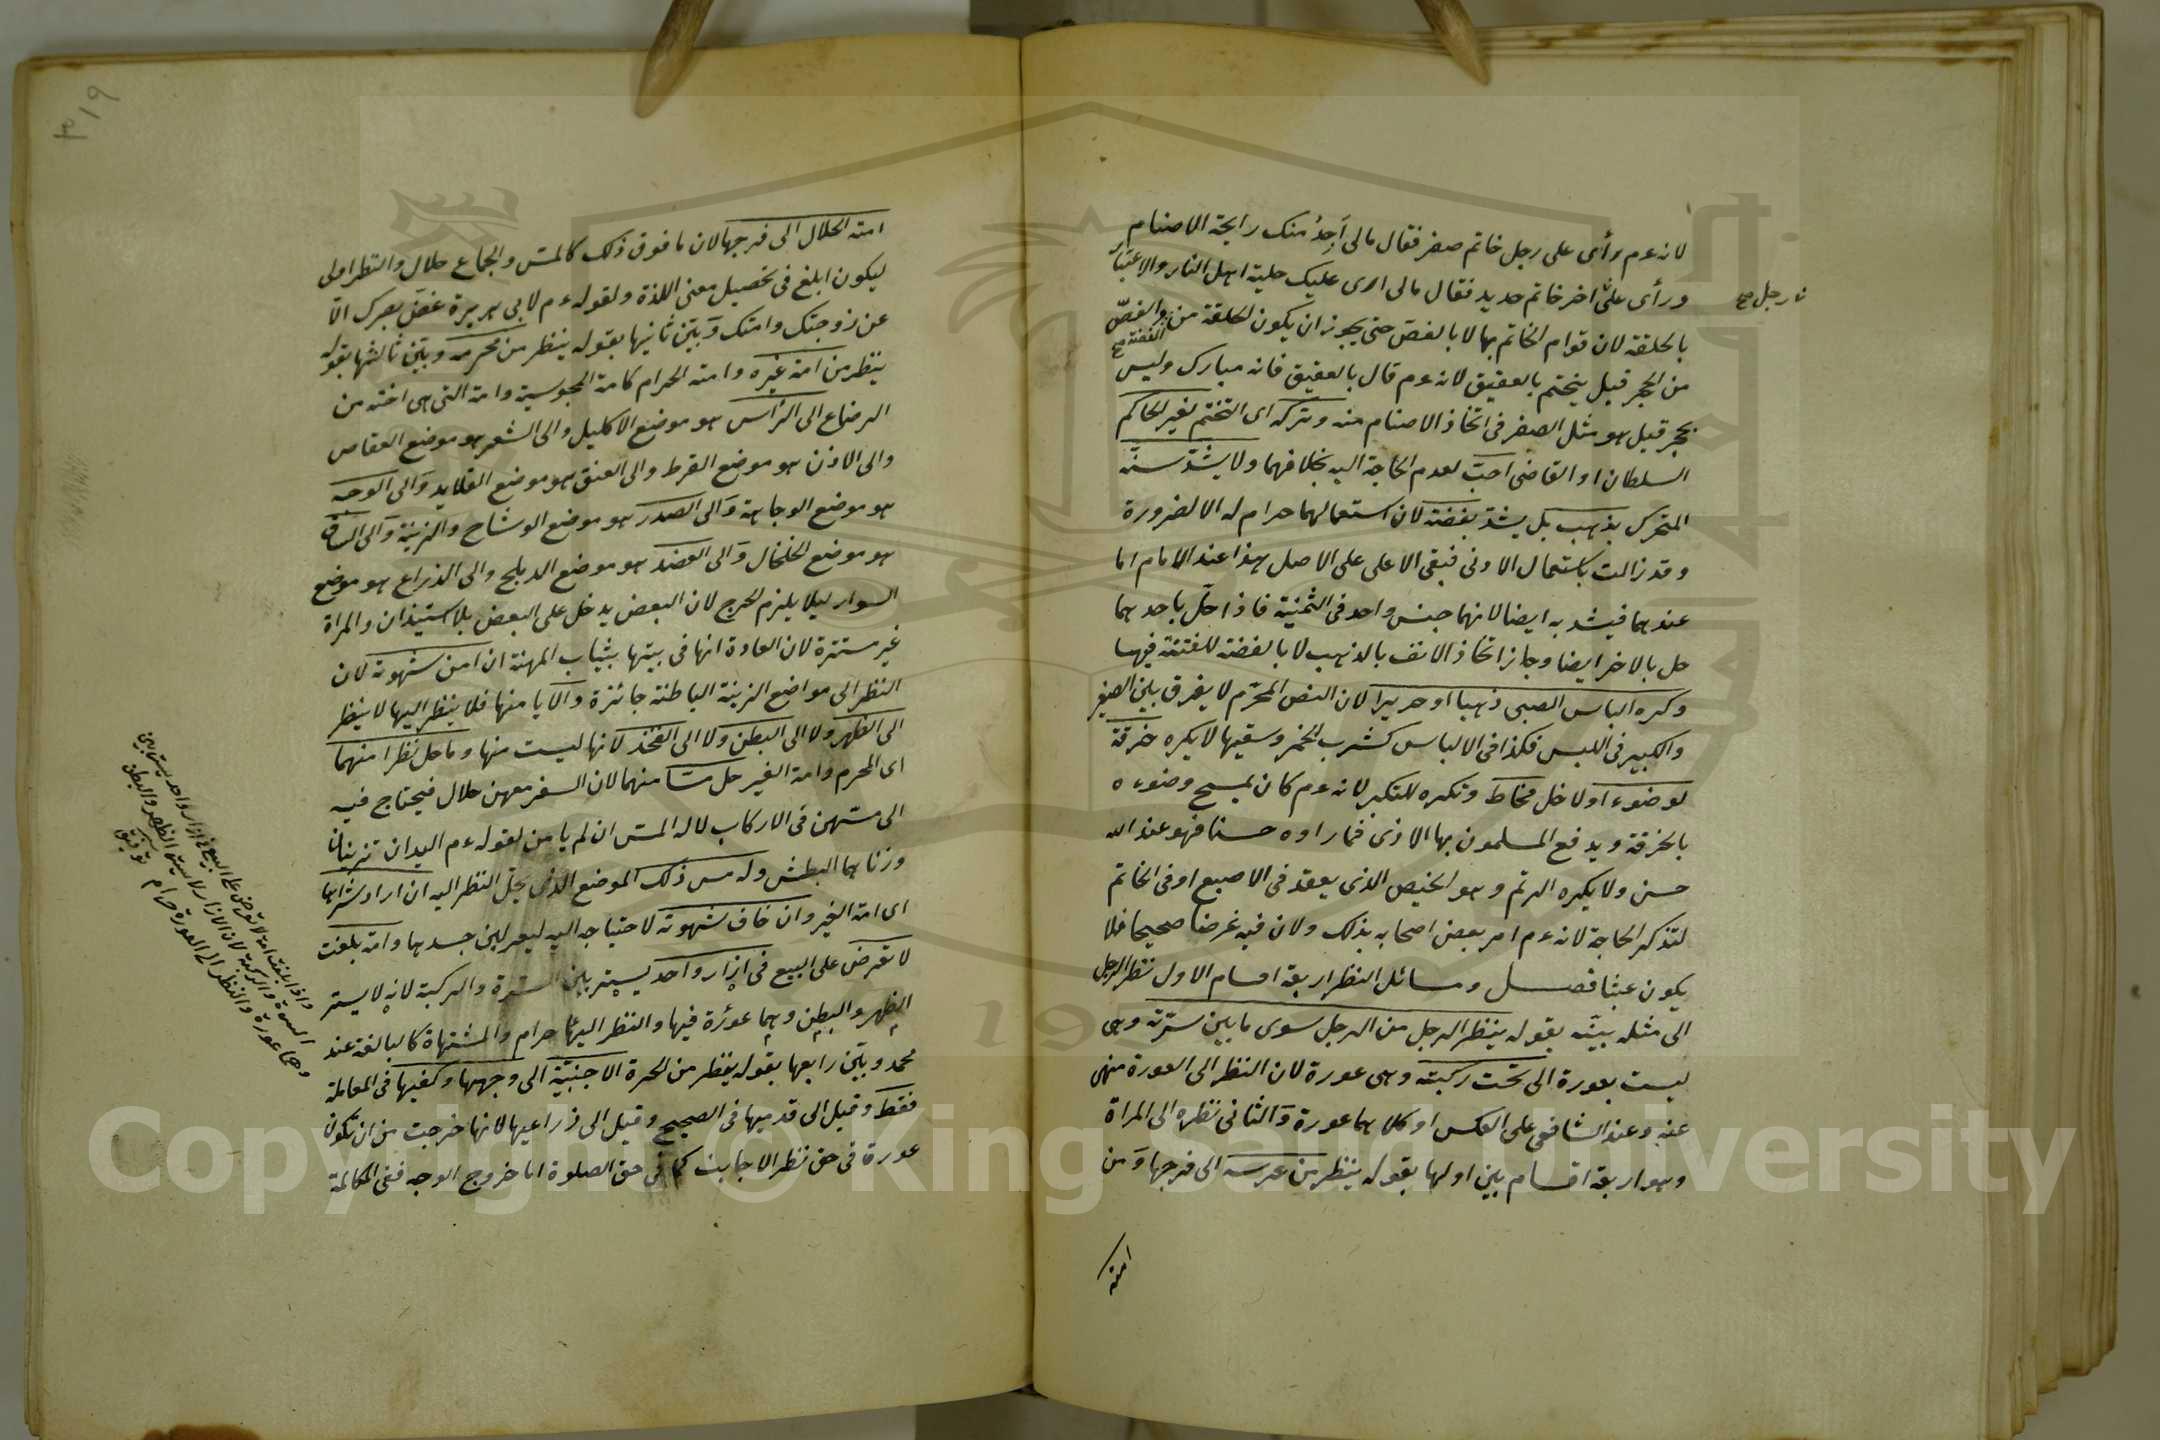 لانه عم رأى على رجل خاتم صفر فقال مالى أجدُ منك رايحة الاصنام
ورأى على اخر خاتم حديد فقال مالى ارى عليك حلية اهل النار والاعتبار
بالحلقة لان قوام الخاتم بها لا بالفصّ حتى يجوز ان يكون الحلقة من الفضة والفصّ
من الحجر قيل يتختم بالعقيق لانه عم قال بالعقيق فانه مبارك وليس
بحجر قيل هو مثل الصفر فى اتخاذ الاصنام منه وتركه اى التختم لغير الحاكم
السلطان او القاضى احبّ لعدم الحاجة اليه بخلافهما ولا يشدّ سنّه
المتحرك بذهب بل يشدّ بفضة لان استعمالهما حرام له الا لضرورة
وقد زالت باستعمال الادنى فبقى الاعلى على الاصل هذا عند الامام اما
عندهما فيشد به ايضا لانهما جنس واحد فى الثمنية فاذا حلّ باحدهما
حل بالاخر ايضا وجاز اتخاذ الانف بالذهب لا بالفضة للفتنة فيها
وكره الباس الصبى ذهبا او حريرا لان النص المحرّم لا يفرق بلين الصغير
والكبير فى اللبس فكذا فى الالباس كشرب الخمر وسقيها لا يكره خرقة
لوضوء او لاخل مخاط وتكره للتكبر لانه عم كان يمسح وضوءه
بالخرقة ويدفع المسلمون بها الاذى فماراوه حسنا فهو عند الله
حسن ولا يكره الرتم وهو الخيص الذى يعقد فى الاصبع او فى الخاتم
لتذكر الحاجة لانه عم امر بعض اصحابه بذلك ولان فيه غرضا صحيحا فلا
يكون عبثا فصل ومسائل النظر اربعة اقسام الاول نظر الرجل
الى مثله بيّنه بقوله ينظر الرجل من الرجل سوى ما بين سرّته وهى
ليست بعورة الى تحت ركبته وهى عورة لان النظر الى العورة منهى
عنه وعند الشافعى على العكس او كلاهما عورة والثانى نظره الى المراة
وهو اربعة اقسام بين اولها بقوله ينظر من عرسه الى فرجها وَمن
امته
رجل صح
٣١٩
امته الحلال الى فرجها لان ما فوق ذلك كالمسّ والجماع حلال والنظر اولى
ليكون ابلغ فى تحصيل معنى اللذة ولقوله عم لابى هريرة غضّ بصرك الّا
عن زوجتك وامتك وبيّن ثانيها بقوله ينظر من محرمه وبيّن ثالثها بقوله
ينظر من امة غيره وامته الحرام كامة المجوسية وامة التى هى اخته من
الرضاع الى الرّاس هو موضع الاكليل والى الشعر هو موضع العقاص
والى الاذن هو موضع القرط والى العنق هو موضع القلايد وَالى الوجه
هو موضع الوجاهة وَالى الصدر هو موضع الوشاح والزينة وَالى الساق
هو موضع الخلخال وَالى العضد هو موضع الدبلج والى الذراع هو موضع
السوار ليلا يلزم الحرج لان البعض يدخل على البعض بلا استيذان والمراة
غير مستترة لان العادة انها فى بيتها بثياب المهنة ان امن شهوته لان
النظر الى مواضع الزينة الباطنة جائزة والّا يا منها فلا ينظر اليها لا ينظر
الى الظهر ولا الى البطن ولا الى الفخذ لانها ليست منها وما حل نظرا منهما
اى المحرم وامة الغير حل مسّا منهما لان السفر معهن حلال فيحتاج فيه
الى مسّهن فى الاركاب لا له المسّ ان لم يا من لقوله عم اليدان تزنيان
وزناهما البطش وله مس ذلك الموضع الذى يحل النظر اليه ان اراد شراها
اى امة الغير وان خاف شهوته لاحتياجه اليه ليعرلين جسدها وامة بلغت
لا تعرض على البيع فى ازار واحد يستر بين السترة والركبة لانه لا يستر
الظهر والبطن وهما عورة فيها والنظر اليهما حرام والمشتهاة كالبالغة عند
محمد وبيّن رابعها بقوله ينظر من الحرة الاجنبيّة الى وجهها وكفيها فى المعاملة
فقط وقيل الى قدميها فى الصحيح وقيل الى ذراعيها لانها خرجت من ان تكون
عورة فى حق نظر الاجانب كما فى حق الصلوة اما خروج الوجه ففى المكالمة
واذا بلغت امة لا تعرض على البيع فى ازار واحد يستر بين
السرة والركبة لان الازار لا يستر الظهر والبطن
وهما عورة والنظر الى العورة حرام
Copyright © King Saud University